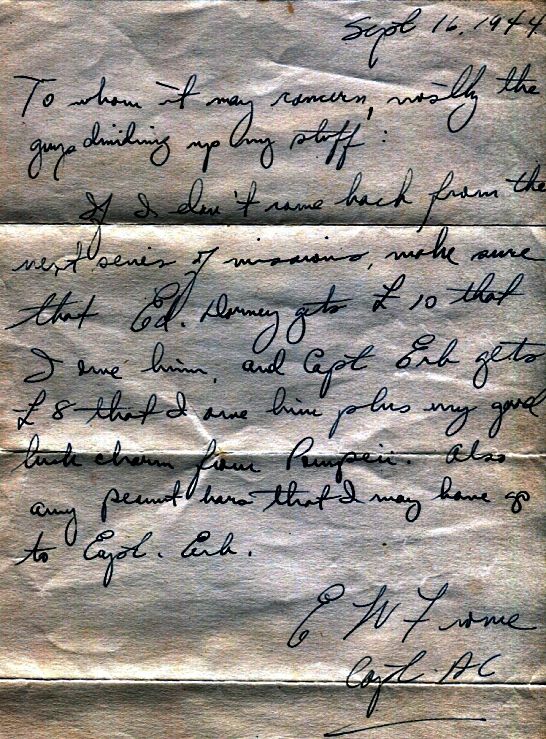 Sept 16, 1944
To whom it may concern, mostly the
guys dividing up my stuff:
If I don't come back from the
next series of missions, make sure
that Ed. Dorney gets £ 10 that
I owe him, and Capt Erb gets
£ 8 that I owe him plus my good
luck charm from Pompeii. Also
any peanut bars that I may have go
to Capt. Erb.
E. W.
Capt. AC